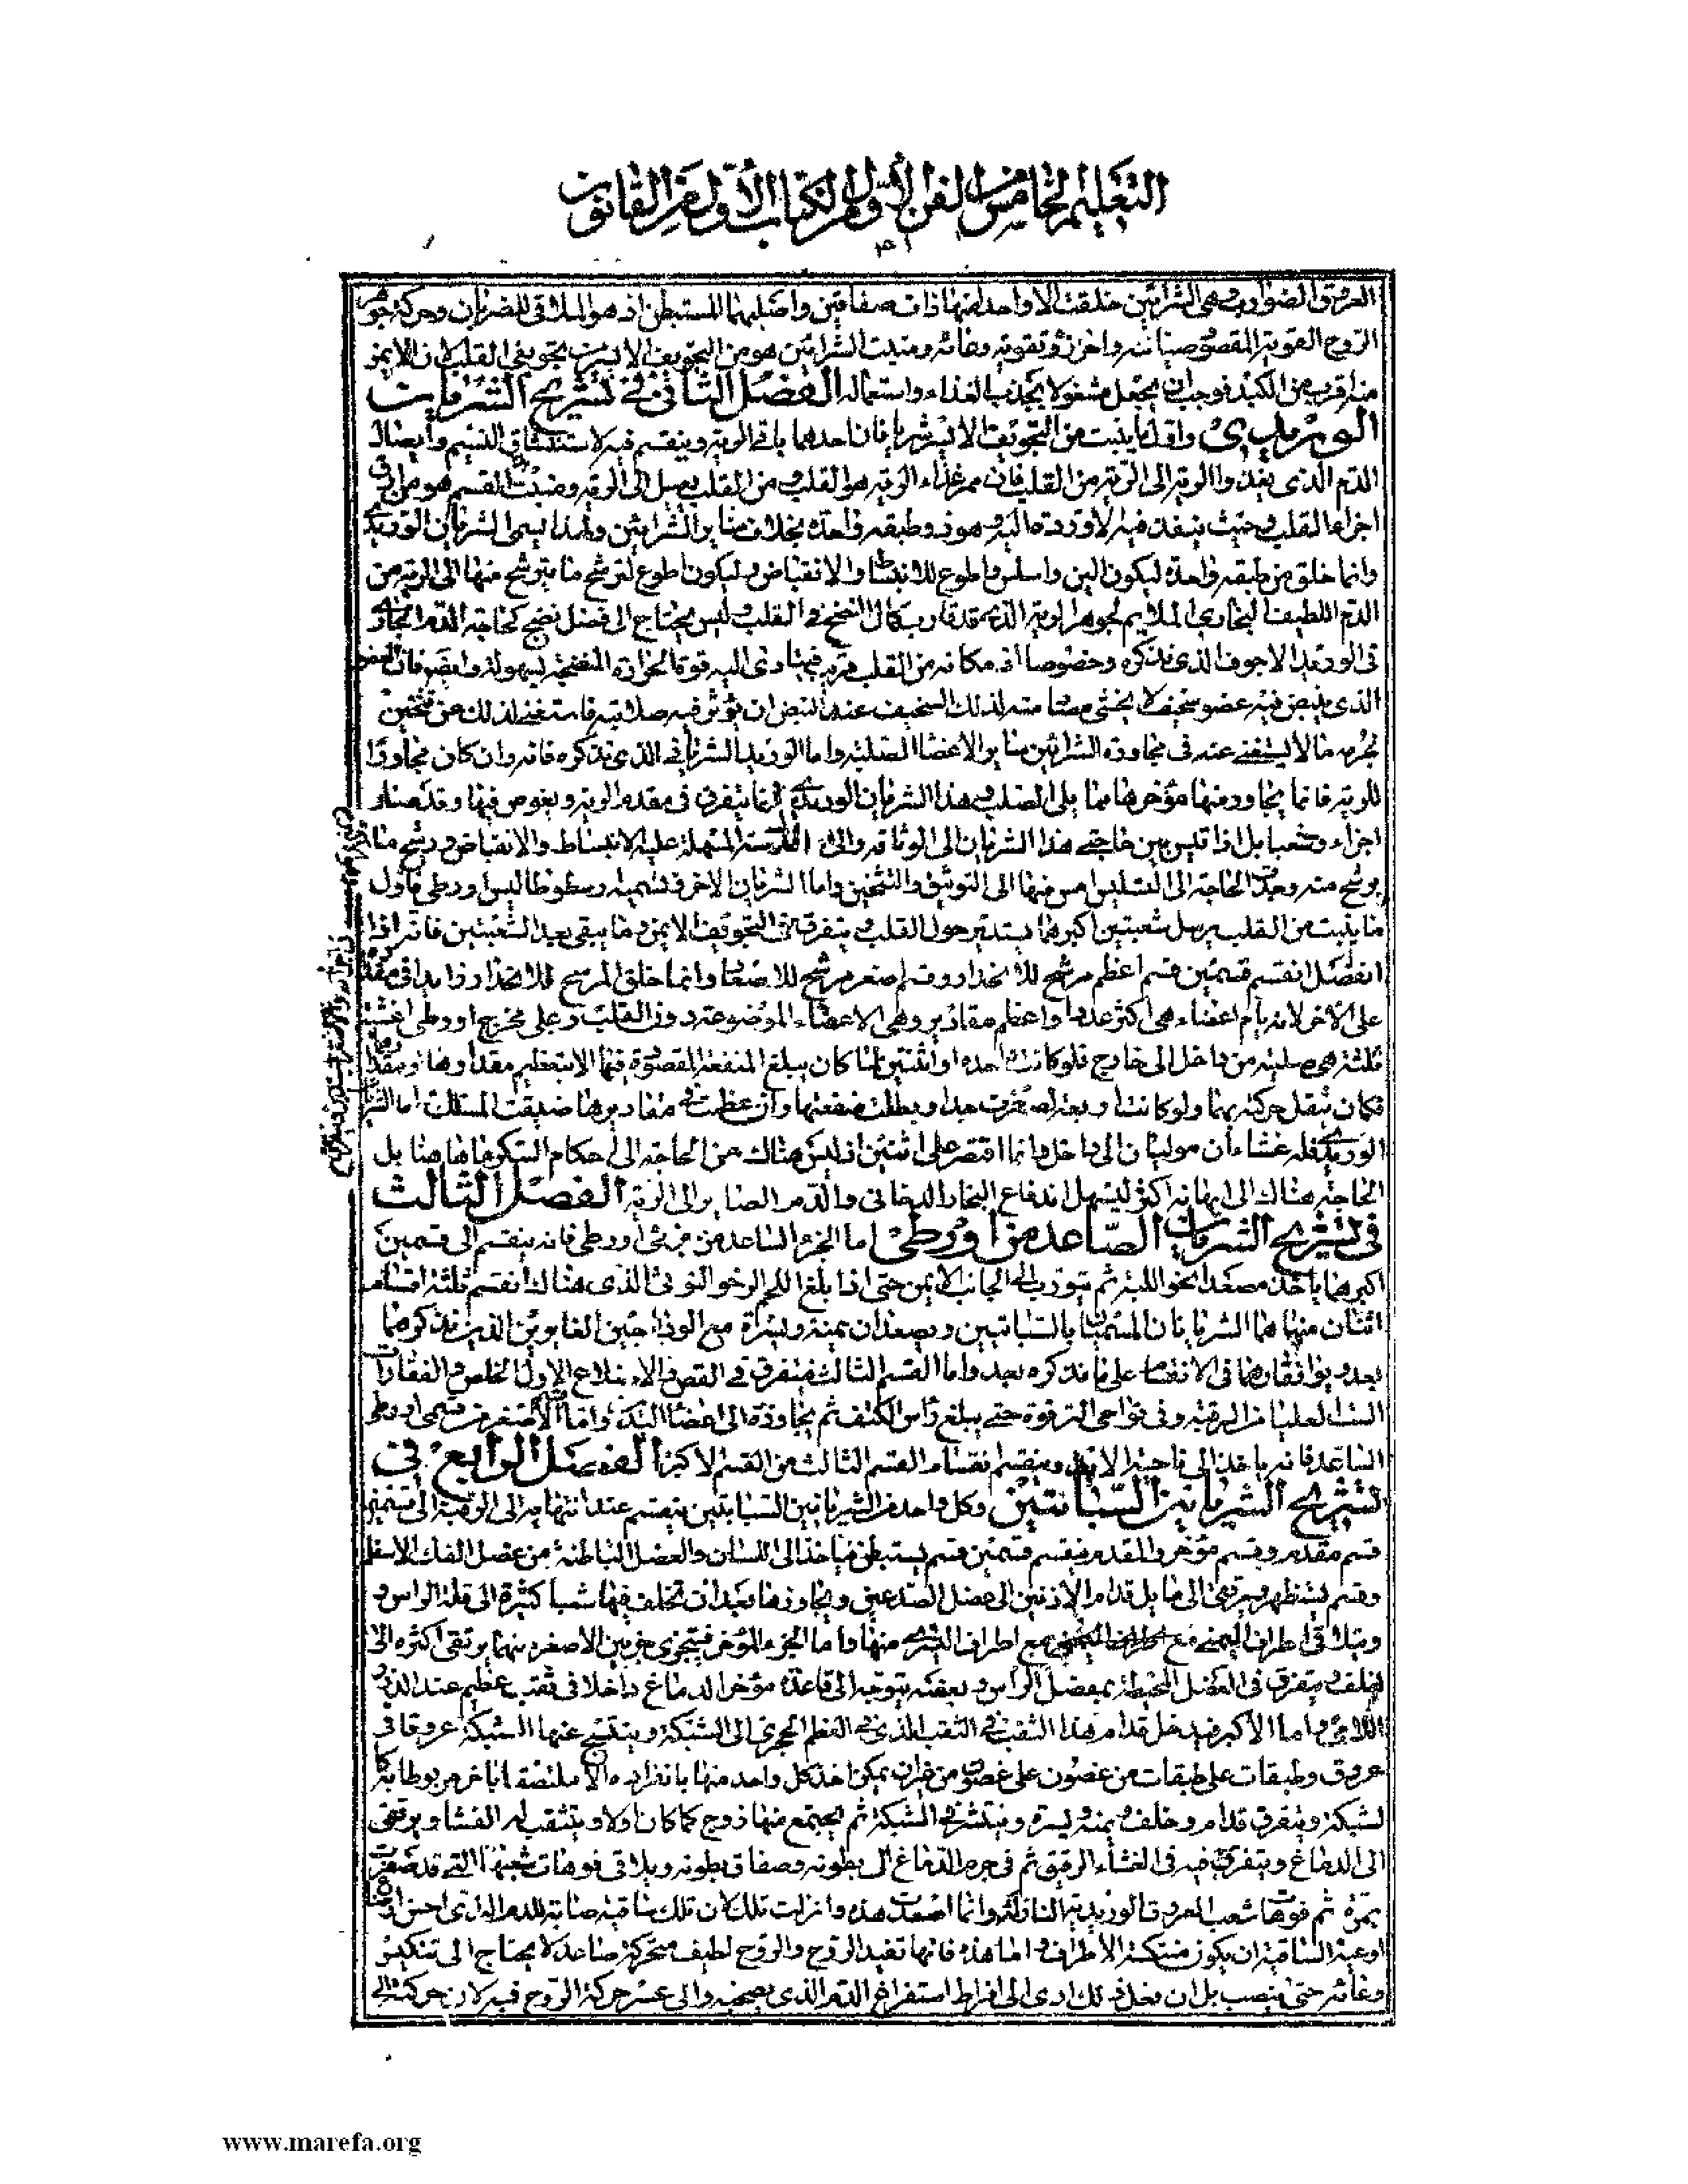 التعليم الخامس من الفن الأول من الكتاب الأول من القانون
العروق الضوارب وهى الشرائين خلقت الا واحدة منها ذات صفاقين واصلبهما المستبطن اذ هو الملاقى للضربان وحركة جوهر
الروح القوية المقصود صيانته واحرازه وتقويته وعائه ومنبت الشرائين هو من التجويف الايسر من تجويفى القلب لان الايمن
منه اقرب من الكبد فوجب ان يجعل مشغولا بجذب الغذاء واستعماله الفصل الثانى فى تشريح الشريان
الوريدى واول ما ينبت من التجويف الايسر شريانان احدهما ياتى الرية وينقسم فيها لاستنشاق النسيم وايصال
الدم الذى يغذو الرية الى الرية من القلب فان ممر غذاء الرية هو القلب ومن القلب يصل الى الرية ومنبت القسم هو من ارق
اجزاء القلب وحيث ينفذ فيه الاوردة اليه وهو ذو طبقة واحدة بخلاف سائر الشرائين ولهذا يسمى الشريان الوريدى
وانما خلق من طبقة واحدة ليكون الين واسلس واطوع للانبساط والانقباض وليكون اطوع لترشح ما يترشح منها الى الرية من
الدم اللطيف البخارى الملايم لجوهر الرية الذى قد قارب كمال النضج فى القلب وليس يحتاج الى فضل نضج كحاجة الدم الجارى
فى الوريد الاجوف الذى نذكره وخصوصا اذ مكانه من القلب قريب فيتادى اليه قوته الحارة المنضجة بسهولة وايضا فان العضو
الذى ينبض فيه عضو سخيف لا يخشى مصادمته لذلك السخيف عند النبض ان يؤثر فيه صلابته فاستغنى لذلك عن تثخين
جرمه ما لا يستغنى عنه فى مجاورة الشرائين سائر الاعضا الصلبة واما الوريد الشريانى الذى نذكره فانه وان كان مجاورا
للرية فانما يجاور منها مؤخرها مما يلى الصلب وهذا الشريان الوريدى انما يتفرق فى مقدم الرية ويغوص فيها وقد صار
اجزاء وشعبا بل اذا قيس بين حاجتى هذا الشريان الى الوثاقة والى السلاسة المسهلة عليه الانبساط والانقباض ورشح ما
يرشح منه وجدت الحاجة الى التسليس امس منها الى التوثيق والتثخين واما الشريان الاخر فتسميه ارسطوطاليس اورطى فاول
ما ينبت من القلب يرسل شعبتين اكبرهما يستدير حول القلب ويتفرق فى التجويف الايمن وما يبقى بعد الشعبتين فانه اذا
انفصل انقسم قسمين قسم اعظم مرشح للانحدار وقسم اصغر مرشح للاصعاد وانما خلق المرشح للانحدار زايدا فى مقداره
على الاخر لانه يام اعضاء هى اكثر عددا واعظم مقادير وهى الاعضاء الموضوعة دون القلب وعلى مخرج اورطى اغشية
ثلثة هى صلبة من داخل الى خارج فلو كانت واحدة او اثنتين لما كان يبلغ المنفعة المقصودة فيها الا بتعظيم مقدارها او مقدارهما
فكان تثقل حركة بهما ولو كانت اربعة لصغرت جدا وبطلت منفعتها وان عظمت فى مقاديرها ضيقت المسلك اما الشريان
الوريدى فله غشاءان موليان الى داخل وانما اقتصر على اثنين اذ ليس هناك من الحاجة الى احكام السكر ما هاهنا بل
الحاجة هناك الى السلاسة اكثر ليسهل اندفاع البخار الدخانى والدم الصاير الى الرية الفصل الثالث
فى تشريح الشريان الصاعد من اورطى اما الجزء الصاعد من جزئى اورطى فانه ينقسم الى قسمين
اكبرهما ياخذ مصعدا نحو اللبة ثم يتورب الى الجانب الايمن حتى اذا بلغ اللحم الرخو التوثى الذى هناك انقسم ثلثة اقسام
اثنان منها هما الشريانان المسميان بالسباتيين ويصعدان يمنة ويسرة مع الوداجين الغايرين الذين نذكرهما
بعد ويوافقانهما فى الانقسام على ما نذكره بعد واما القسم الثالث فيتفرق فى القص وفى الاضلاع الاول الخلص والفقارات
الست العليا من الرقبة وفى نواحى الترقوة حتى يبلغ راس الكتف ثم يجاوزه الى اعضا اليد واما القسم الاصغر من قسمى اورطى
الصاعد فانه ياخذ الى ناحية الابط وينقسم انقسام القسم الثالث من القسم الاكبر الفصل الرابع فى
تشريح الشريانين السباتيين وكل واحد من الشريانين السباتيين ينقسم عند انتهائه الى الرقبة الى قسمين
قسم مقدم وقسم مؤخر والمقدم ينقسم قسمين قسم يستبطن فياخذ الى اللسان والعضل الباطنة من عضل الفك الاسفل
وقسم يستظهر ويرتقى الى ما يلى قدام الاذنين الى عضل الصدغين ويجاوزها بعد ان تخلف فيها شعبا كثيرة الى قلة الراس و
ويتلاقى اطراف اليمنى مع اطراف اليسرى منها واما الجزء المؤخر فيتجزى جزءين الاصغر منهما يرتقى اكثره الى
خلف ويتفرق فى العضل المحيطة بمفصل الراس وبعضه يتوجه الى قاعدة مؤخر الدماغ داخلا فى ثقب عظيم عند الدرز
اللامى واما الاكبر فيدخل قدام هذا الثقب فى الثقب الذى فى العظم الحجرى الى الشبكة وينتسج عنها الشبكة عروقا فى
عروق وطبقات على طبقات من غصون على غصون من غير ان يمكن اخذ كل واحد منها بانفراده الا ملتصقا باخر مربوطا به
كشبكة ويتفرق قدام وخلف ويمنة ويسرة وينتشر فى الشبكة ثم يجتمع منها زوج كما كان اولا وينثقب له الغشا ويرتقى
الى الدماغ ويتفرق فيه فى الغشاء الرقيق ثم فى جرم الدماغ الى بطونه وصفاق بطونه ويلاقى فوهات شعبها التى قد صغرت
بمرة ثم فوهات شعب العروق الوريدية النازلة وانما اصعدت هذه وانزلت تلك لان تلك ساقية صابة للدم الذى احسن اوضاع
اوعية الساقية ان يكون منتكسة الاطراف واما هذه فانها تفيد الروح والروح لطيف متحركة صاعد لا يحتاج الى تنكيس
وعائه حتى ينصب بل ان فعل ذلك ادى الى افراط استفراغ الدم الذى يصحبه والى عسر حركة الروح فيه لان حركته الى
www.marefa.org